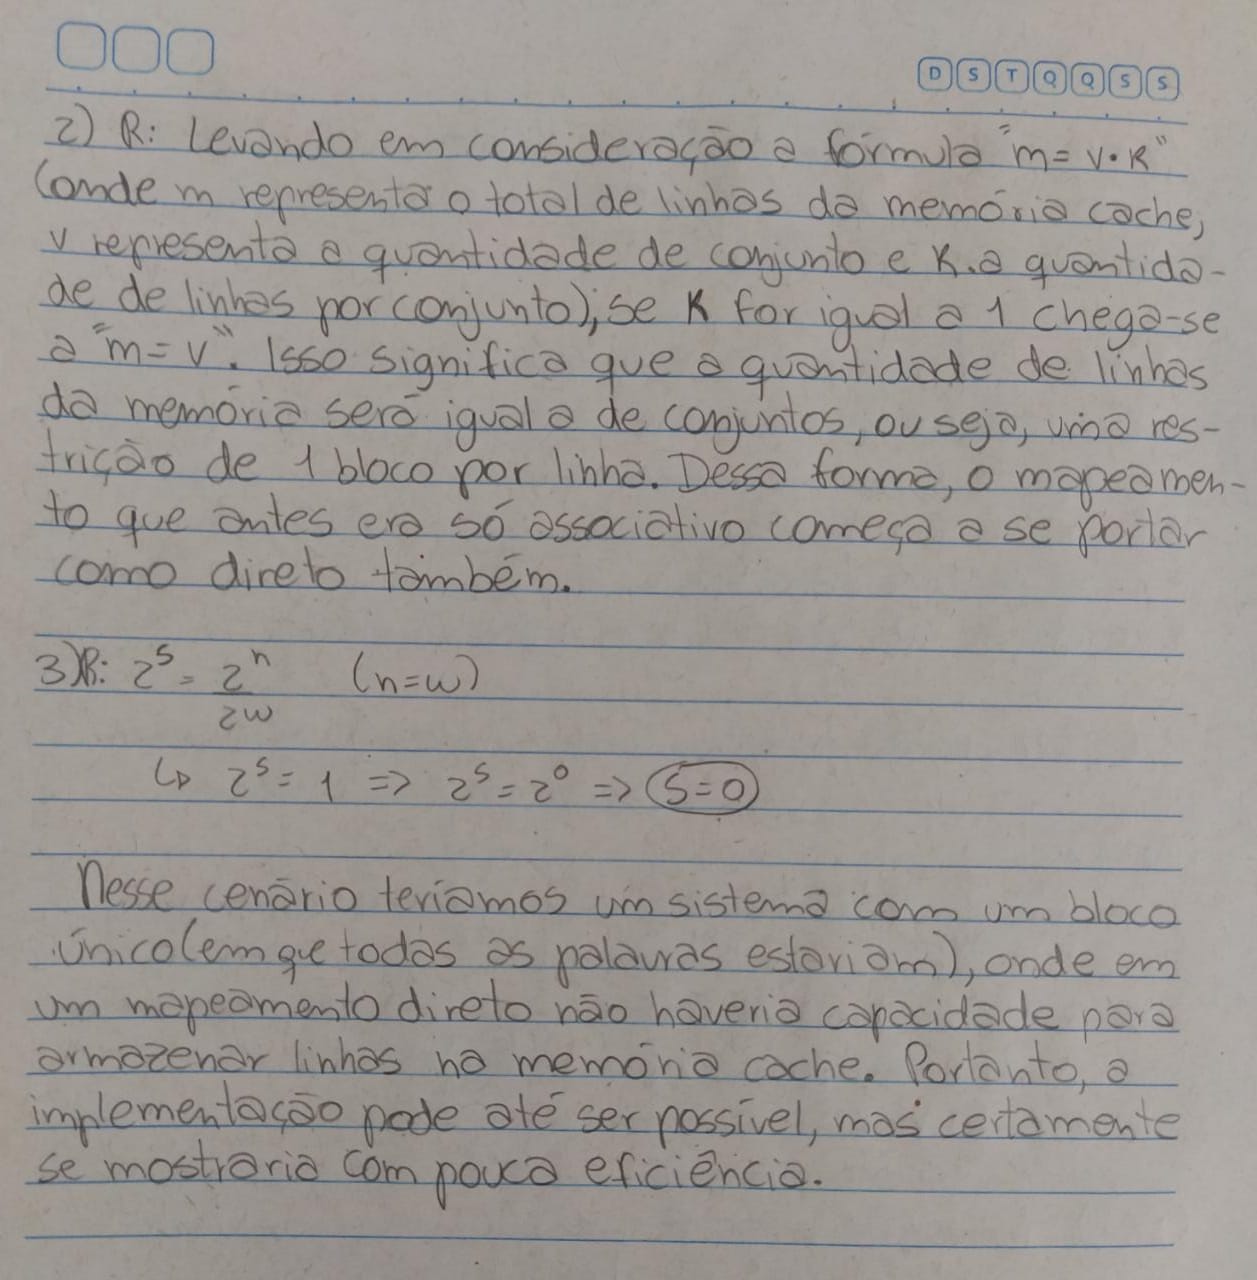 D S T Q Q S S
2) R: Levando em consideração a fórmula "m = v • K"
(onde m representa o total de linhas da memória cache,
v representa a quantidade de conjunto e K. a quantida-
de de linhas por conjunto), se K for igual a 1 chega-se
a "m = v". Isso significa que a quantidade de linhas
da memória será igual a de conjuntos, ou seja, uma res-
trição de 1 bloco por linha. Dessa forma, o mapeamen-
to que antes era só associativo começa a se portar
como direto também.
3) R: 2^s = 2^n (n=w)
2w
↳ 2^s = 1 => 2^s = 2^0 => S=0
Nesse cenário teríamos um sistema com um bloco
único (em que todas as palavras estariam), onde em
um mapeamento direto não haveria capacidade para
armazenar linhas na memória cache. Portanto, a
implementação pode até ser possível, mas certamente
se mostraria com pouca eficiência.